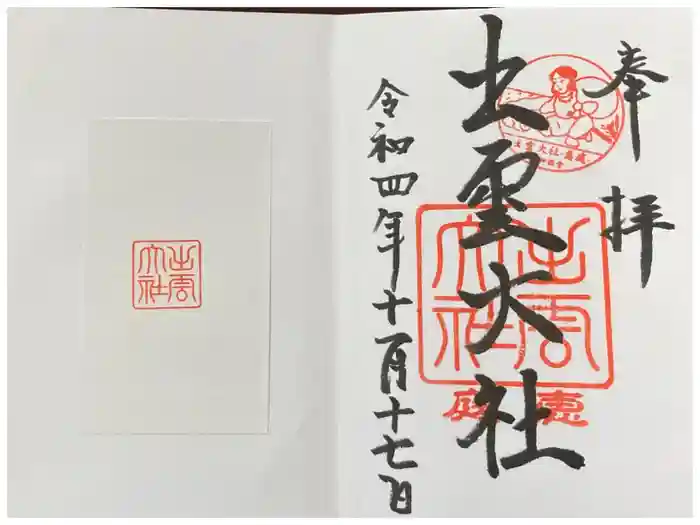 奉拝
出雲大社
令和四年十一月十七日
出雲大社
恵庭
出雲大社